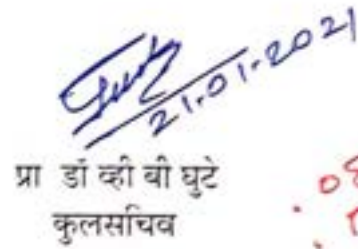 21.01.2021
प्रा डॉ व्ही बी घुटे
कुलसचिव